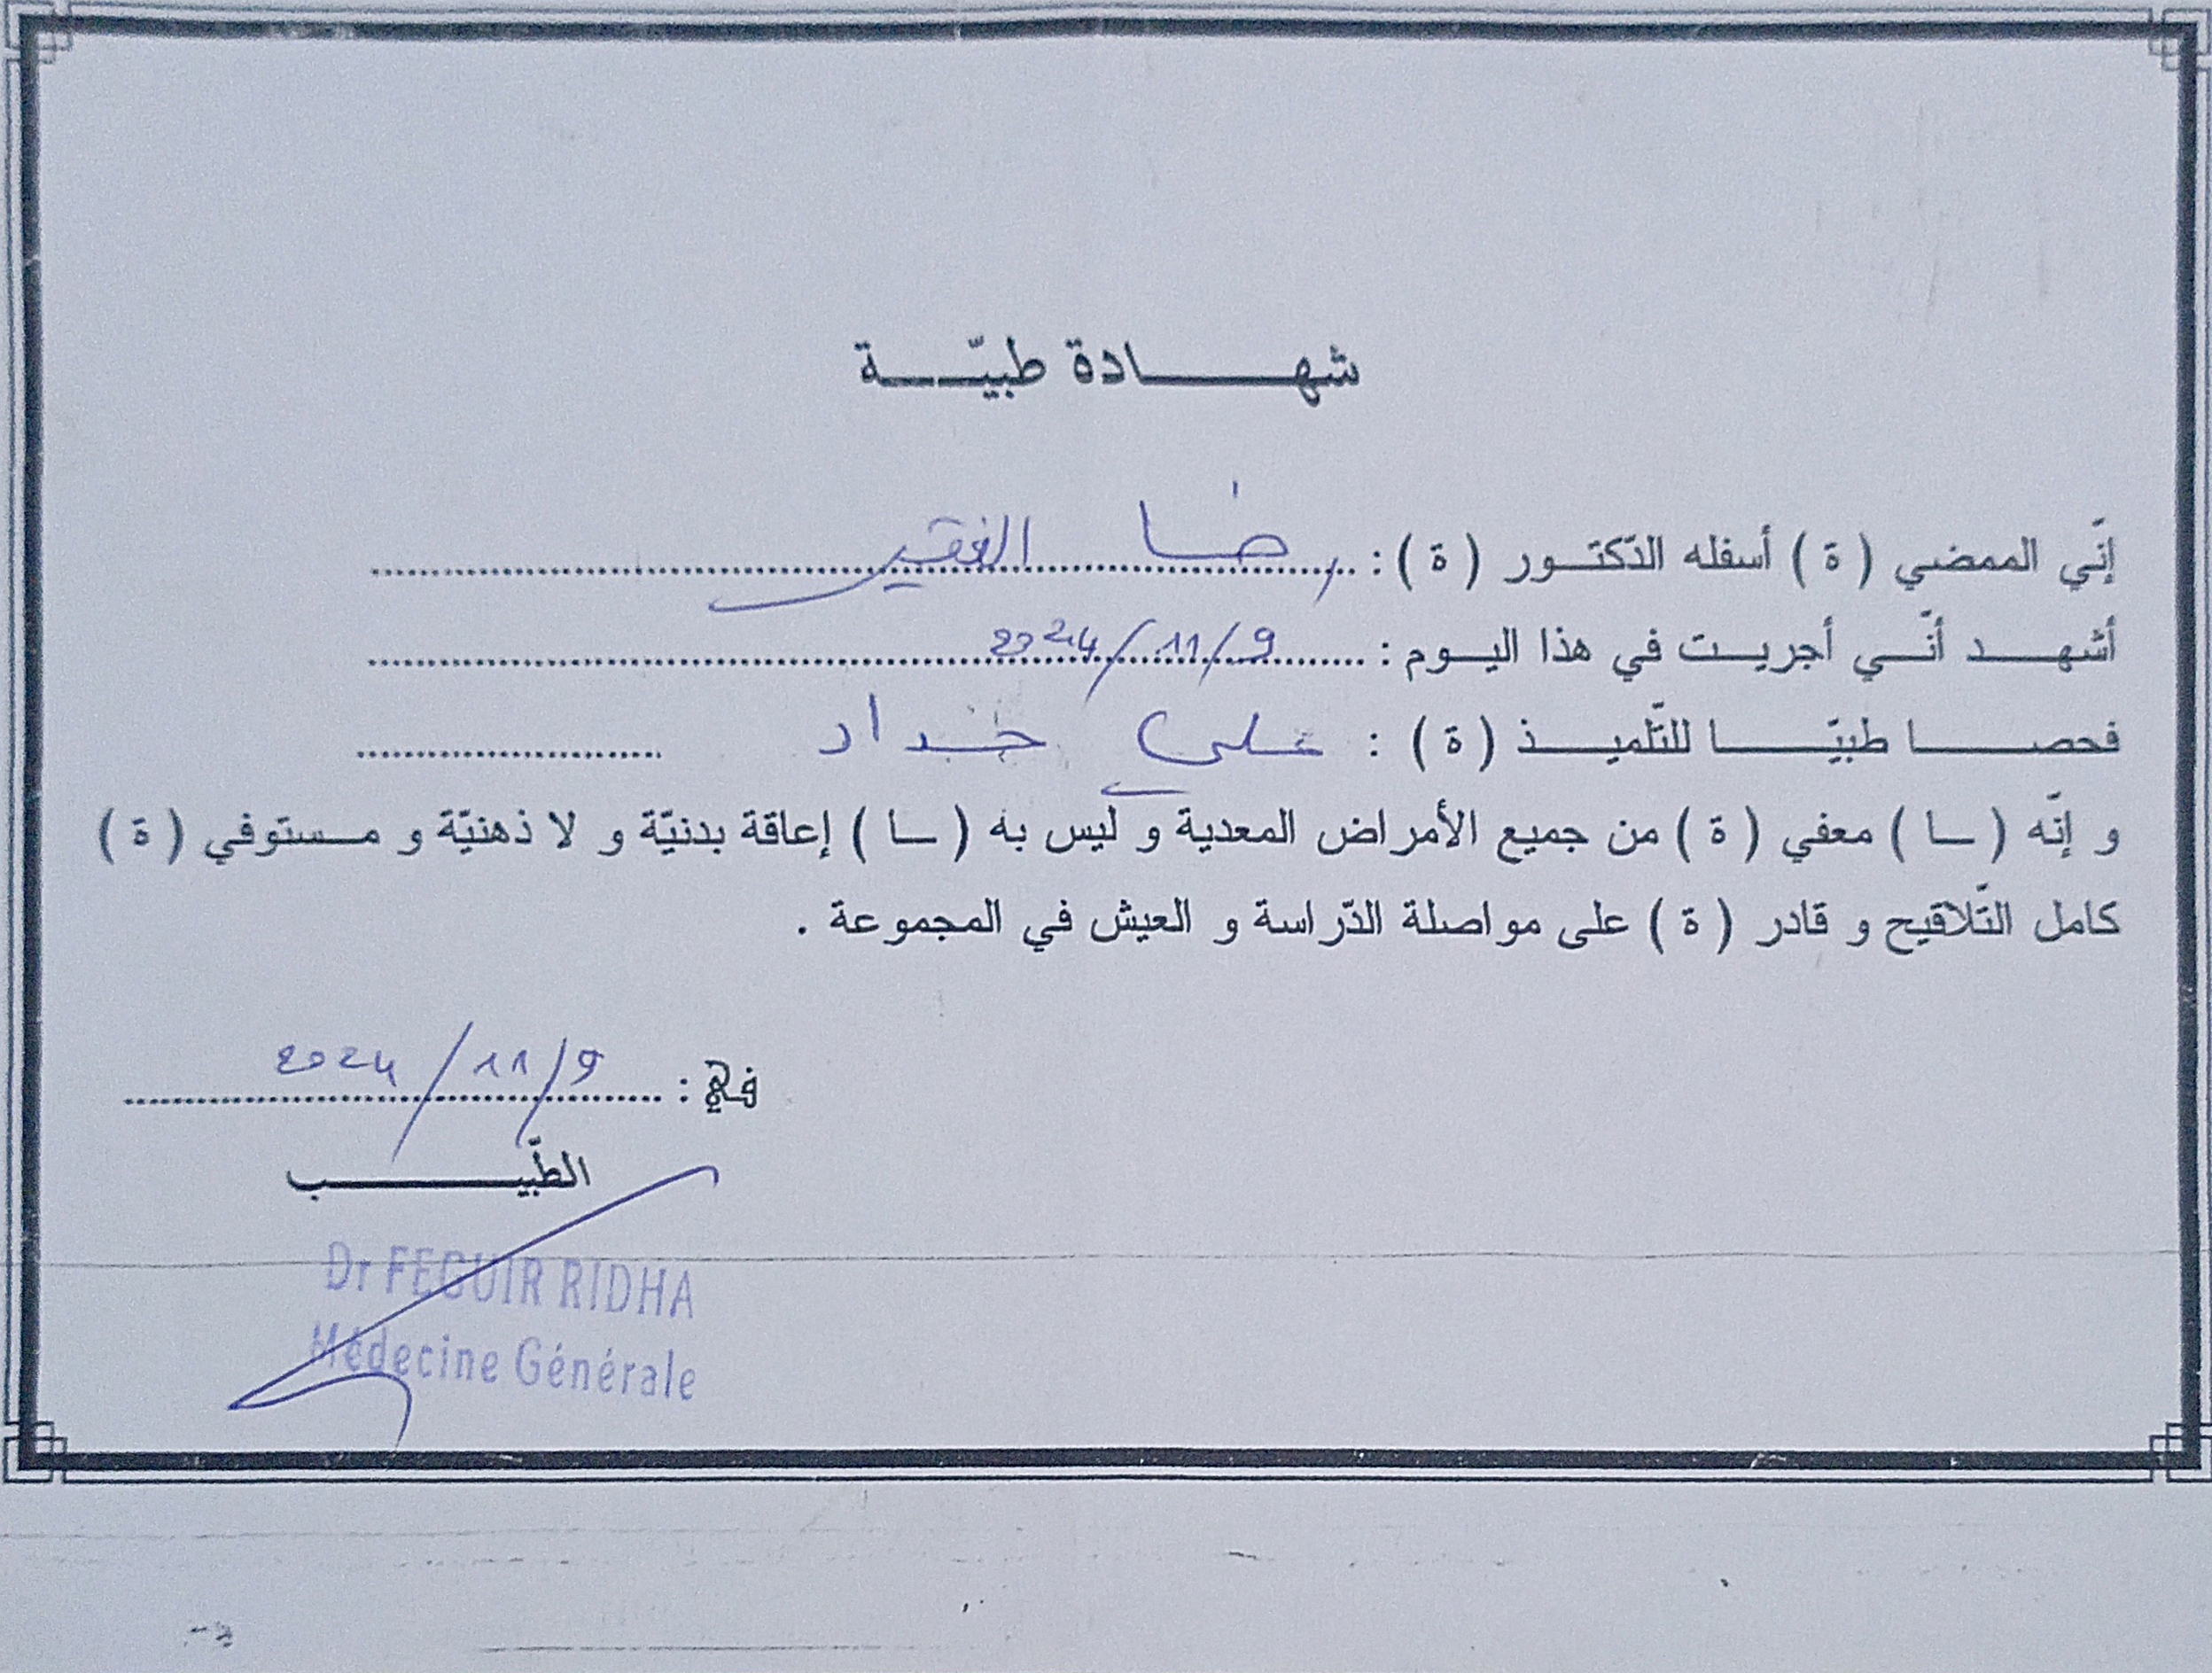 شهادة طبيّة
إنّي الممضي ( ة ) أسفله الدّكتور ( ة ) : رضا الفقير
أشهد أنّي أجريت في هذا اليوم : 9/11/2024
فحصا طبيّا للتّلميذ ( ة ) : علي حداد
و إنّه ( ـا ) معفي ( ة ) من جميع الأمراض المعدية و ليس به ( ـا ) إعاقة بدنيّة و لا ذهنيّة و مستوفي ( ة )
كامل التّلاقيح و قادر ( ة ) على مواصلة الدّراسة و العيش في المجموعة .
في : 9/11/2024
الطّبيب
Dr FEGUIR RIDHA
Médecine Générale